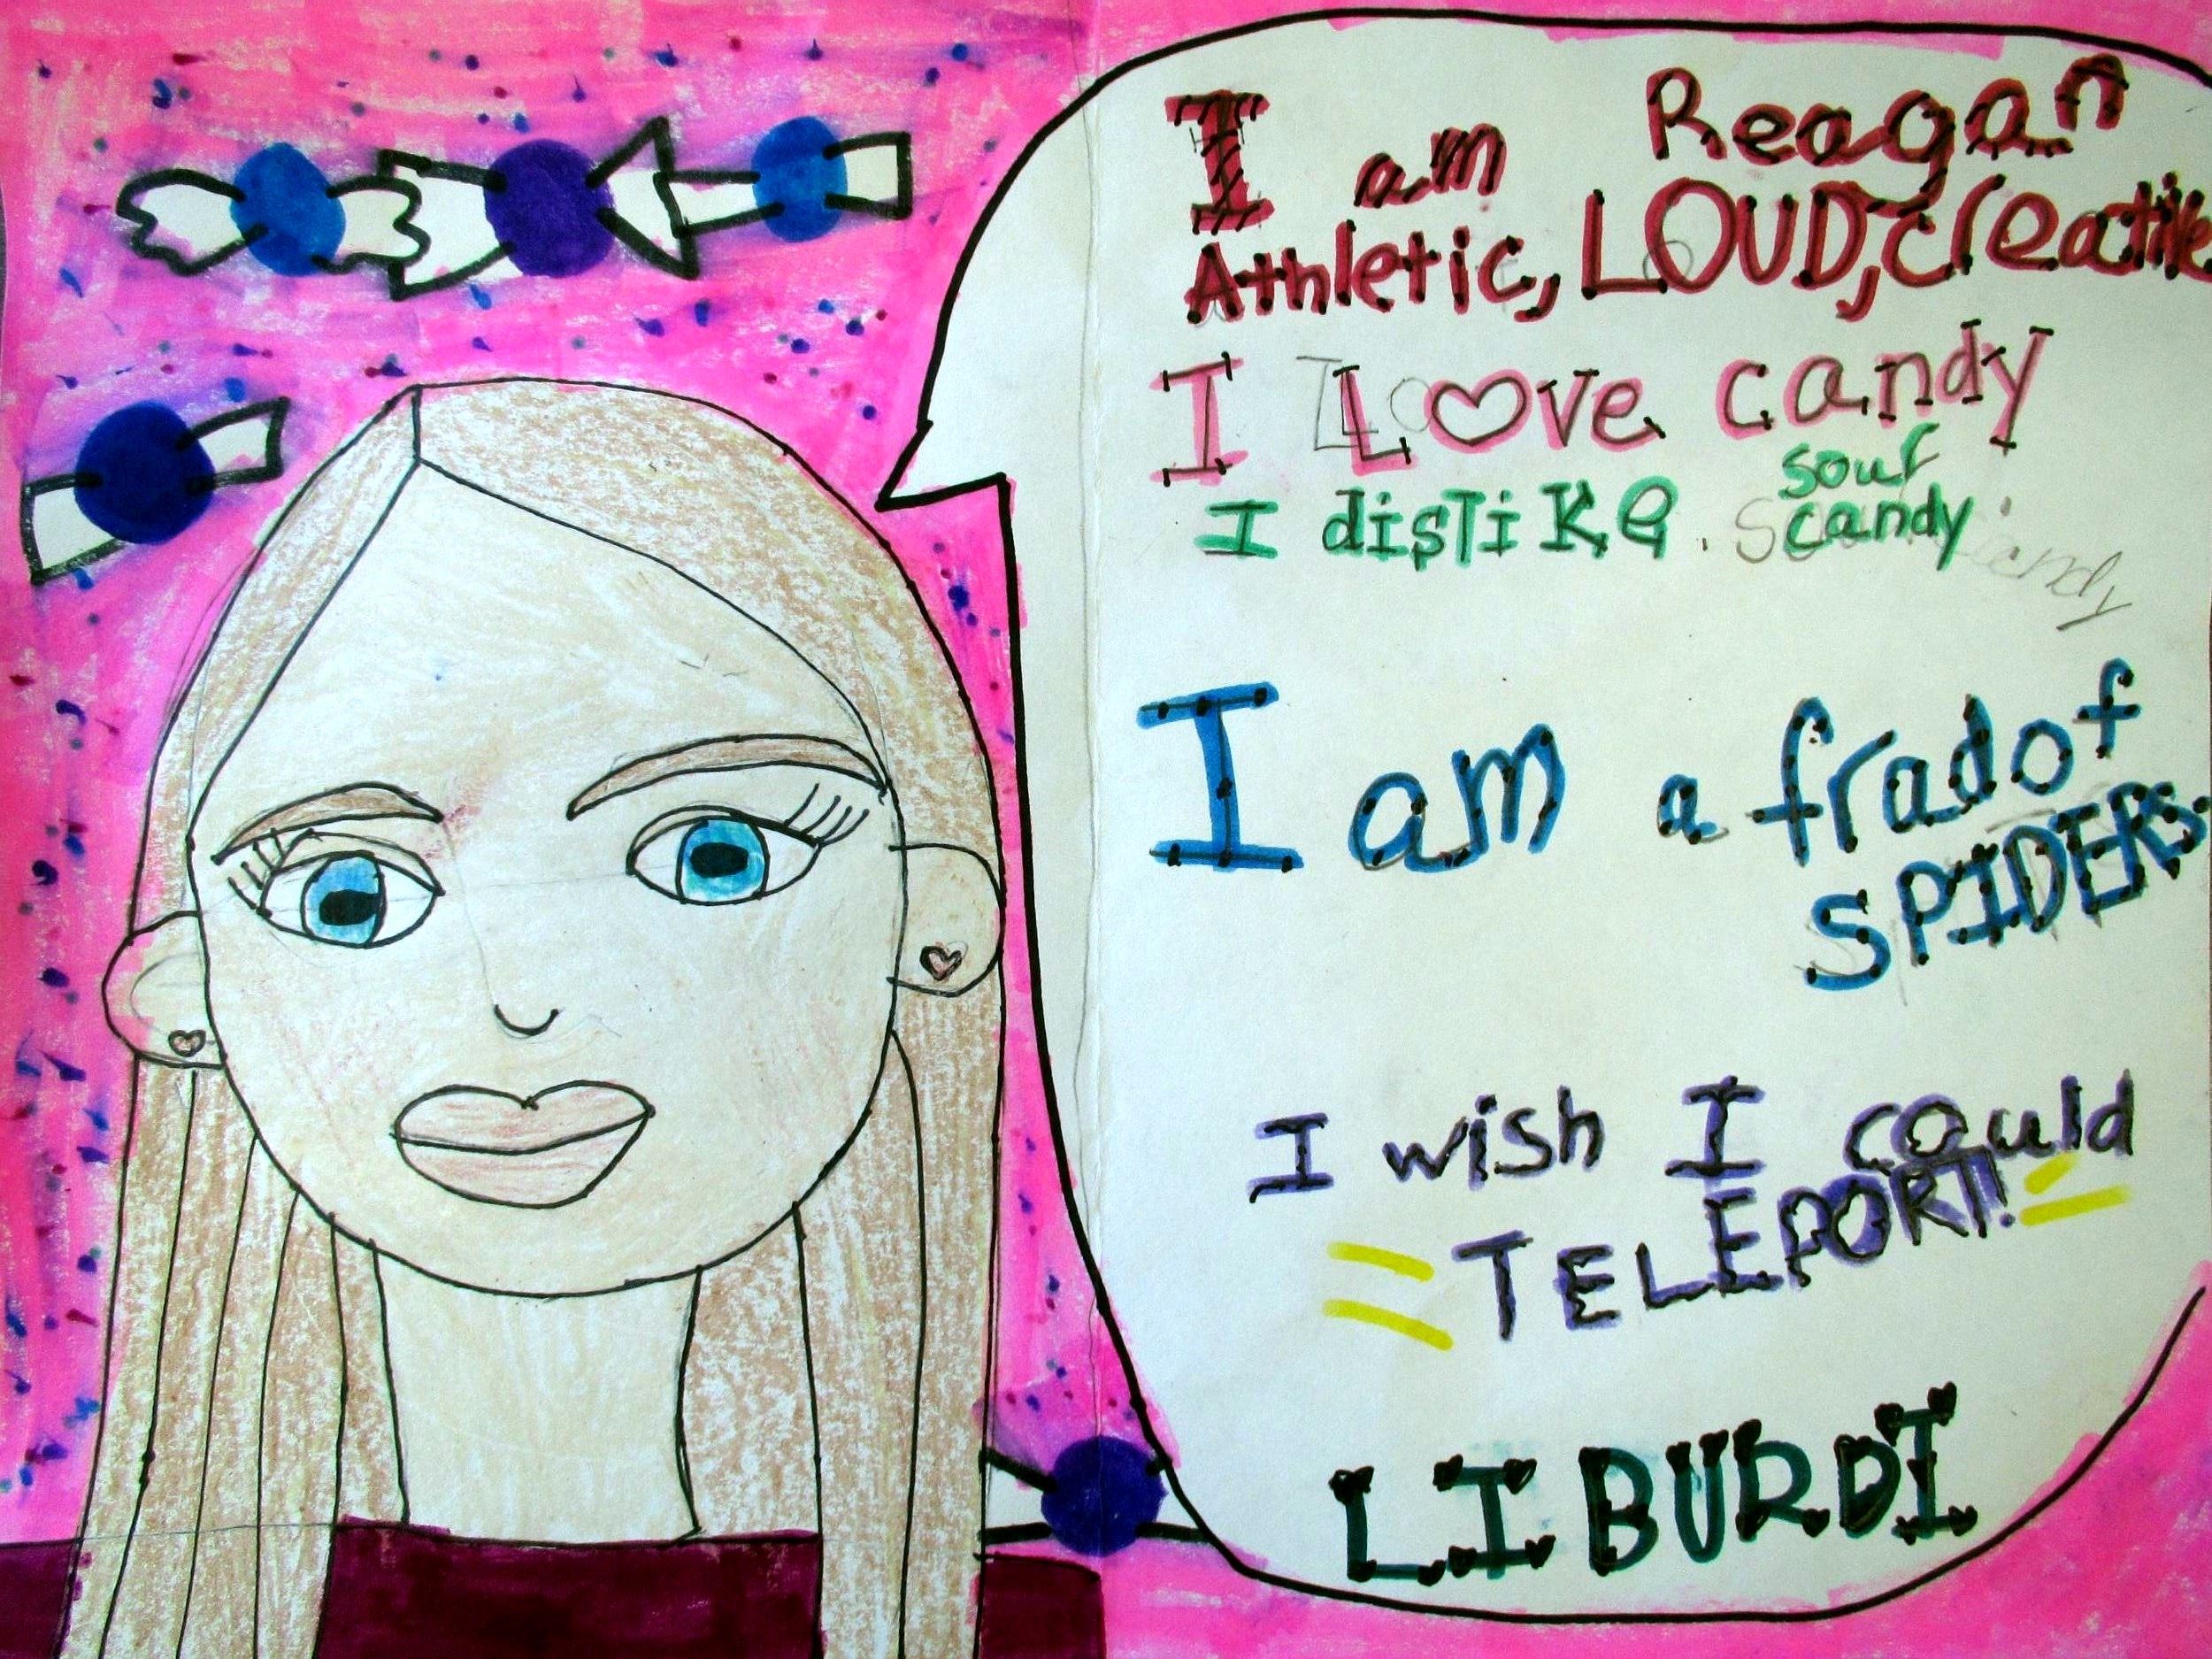 I am Reagan
Athletic, LOUD, creative
I Love candy
I dislike. sour
candy
I am a fradof
SPIDERS.
I wish I could
TELEPORT!
LIBURDI